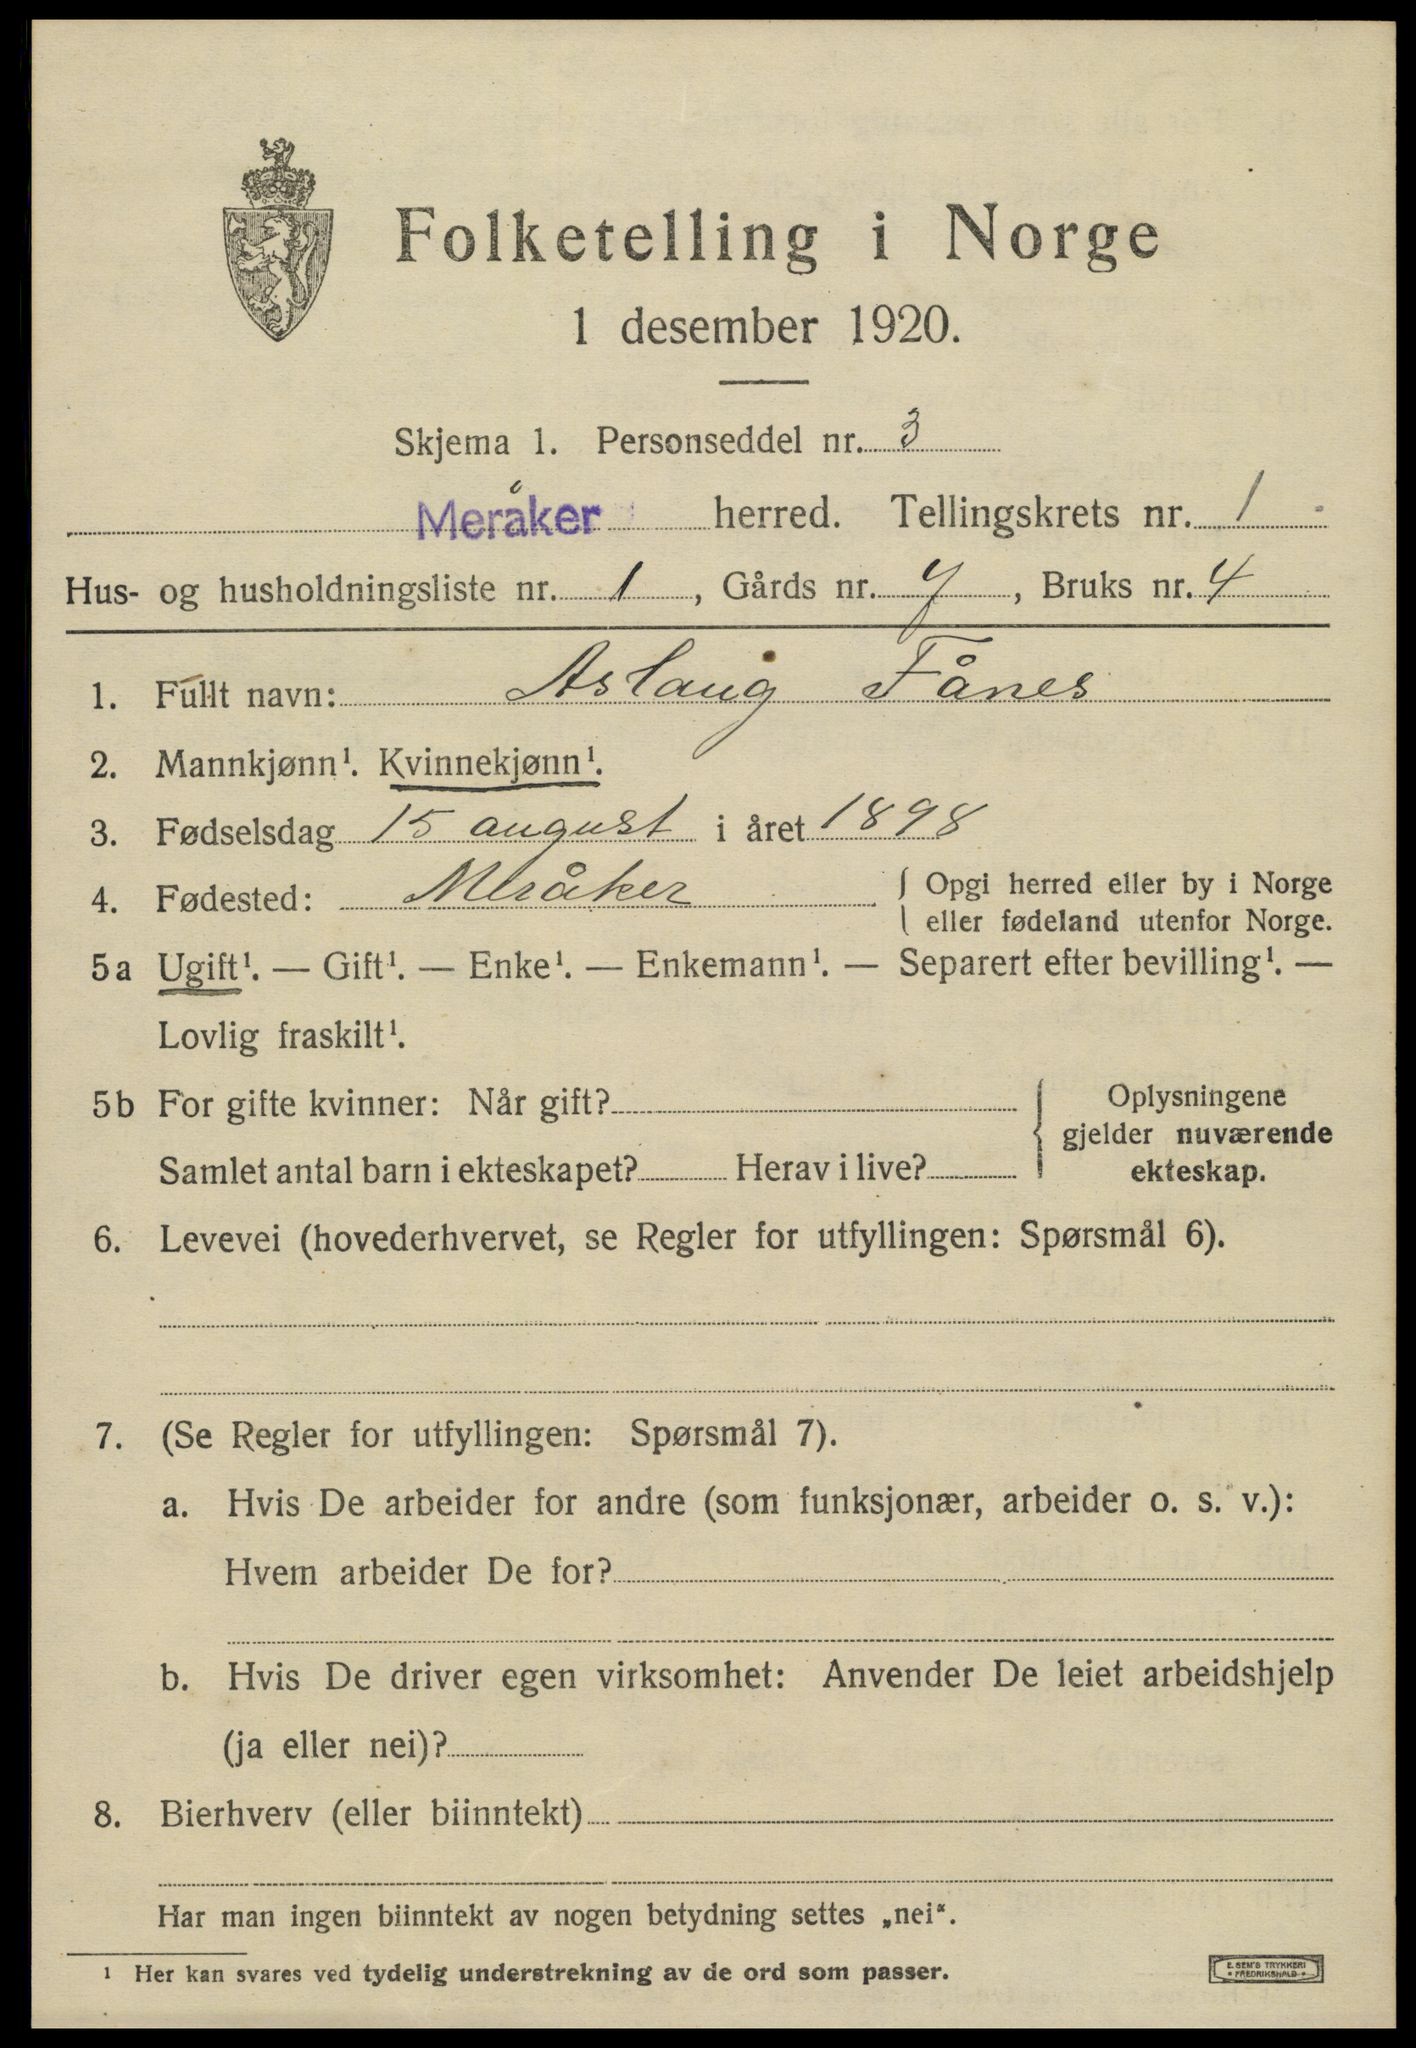 Folketelling i Norge
1 desember 1920.
Skjema 1. Personseddel nr. 3
Meråker herred. Tellingskrets nr. 1
Hus- og husholdningsliste nr. 1, Gårds nr. 7, Bruks nr. 4
1. Fullt navn: Aslaug Fånes
2. Mannkjønn¹. Kvinnekjønn¹.
3. Fødselsdag 15 august i året 1898
4. Fødested: Meråker { Opgi herred eller by i Norge
eller fødeland utenfor Norge.
5a Ugift¹. — Gift¹. — Enke¹. — Enkemann¹. — Separert efter bevilling¹. —
Lovlig fraskilt¹.
5b For gifte kvinner: Når gift?
Samlet antal barn i ekteskapet? Herav i live?
{ Oplysningene
gjelder nuværende
ekteskap.
6. Levevei (hovederhvervet, se Regler for utfyllingen: Spørsmål 6).
7. (Se Regler for utfyllingen: Spørsmål 7).
a. Hvis De arbeider for andre (som funksjonær, arbeider o. s. v.):
Hvem arbeider De for?
b. Hvis De driver egen virksomhet: Anvender De leiet arbeidshjelp
(ja eller nei)?
8. Bierhverv (eller biinntekt)
Har man ingen biinntekt av nogen betydning settes „nei“.
¹ Her kan svares ved tydelig understrekning av de ord som passer.
E. SEM'S TRYKKERI
• FREDRIKSHALD •